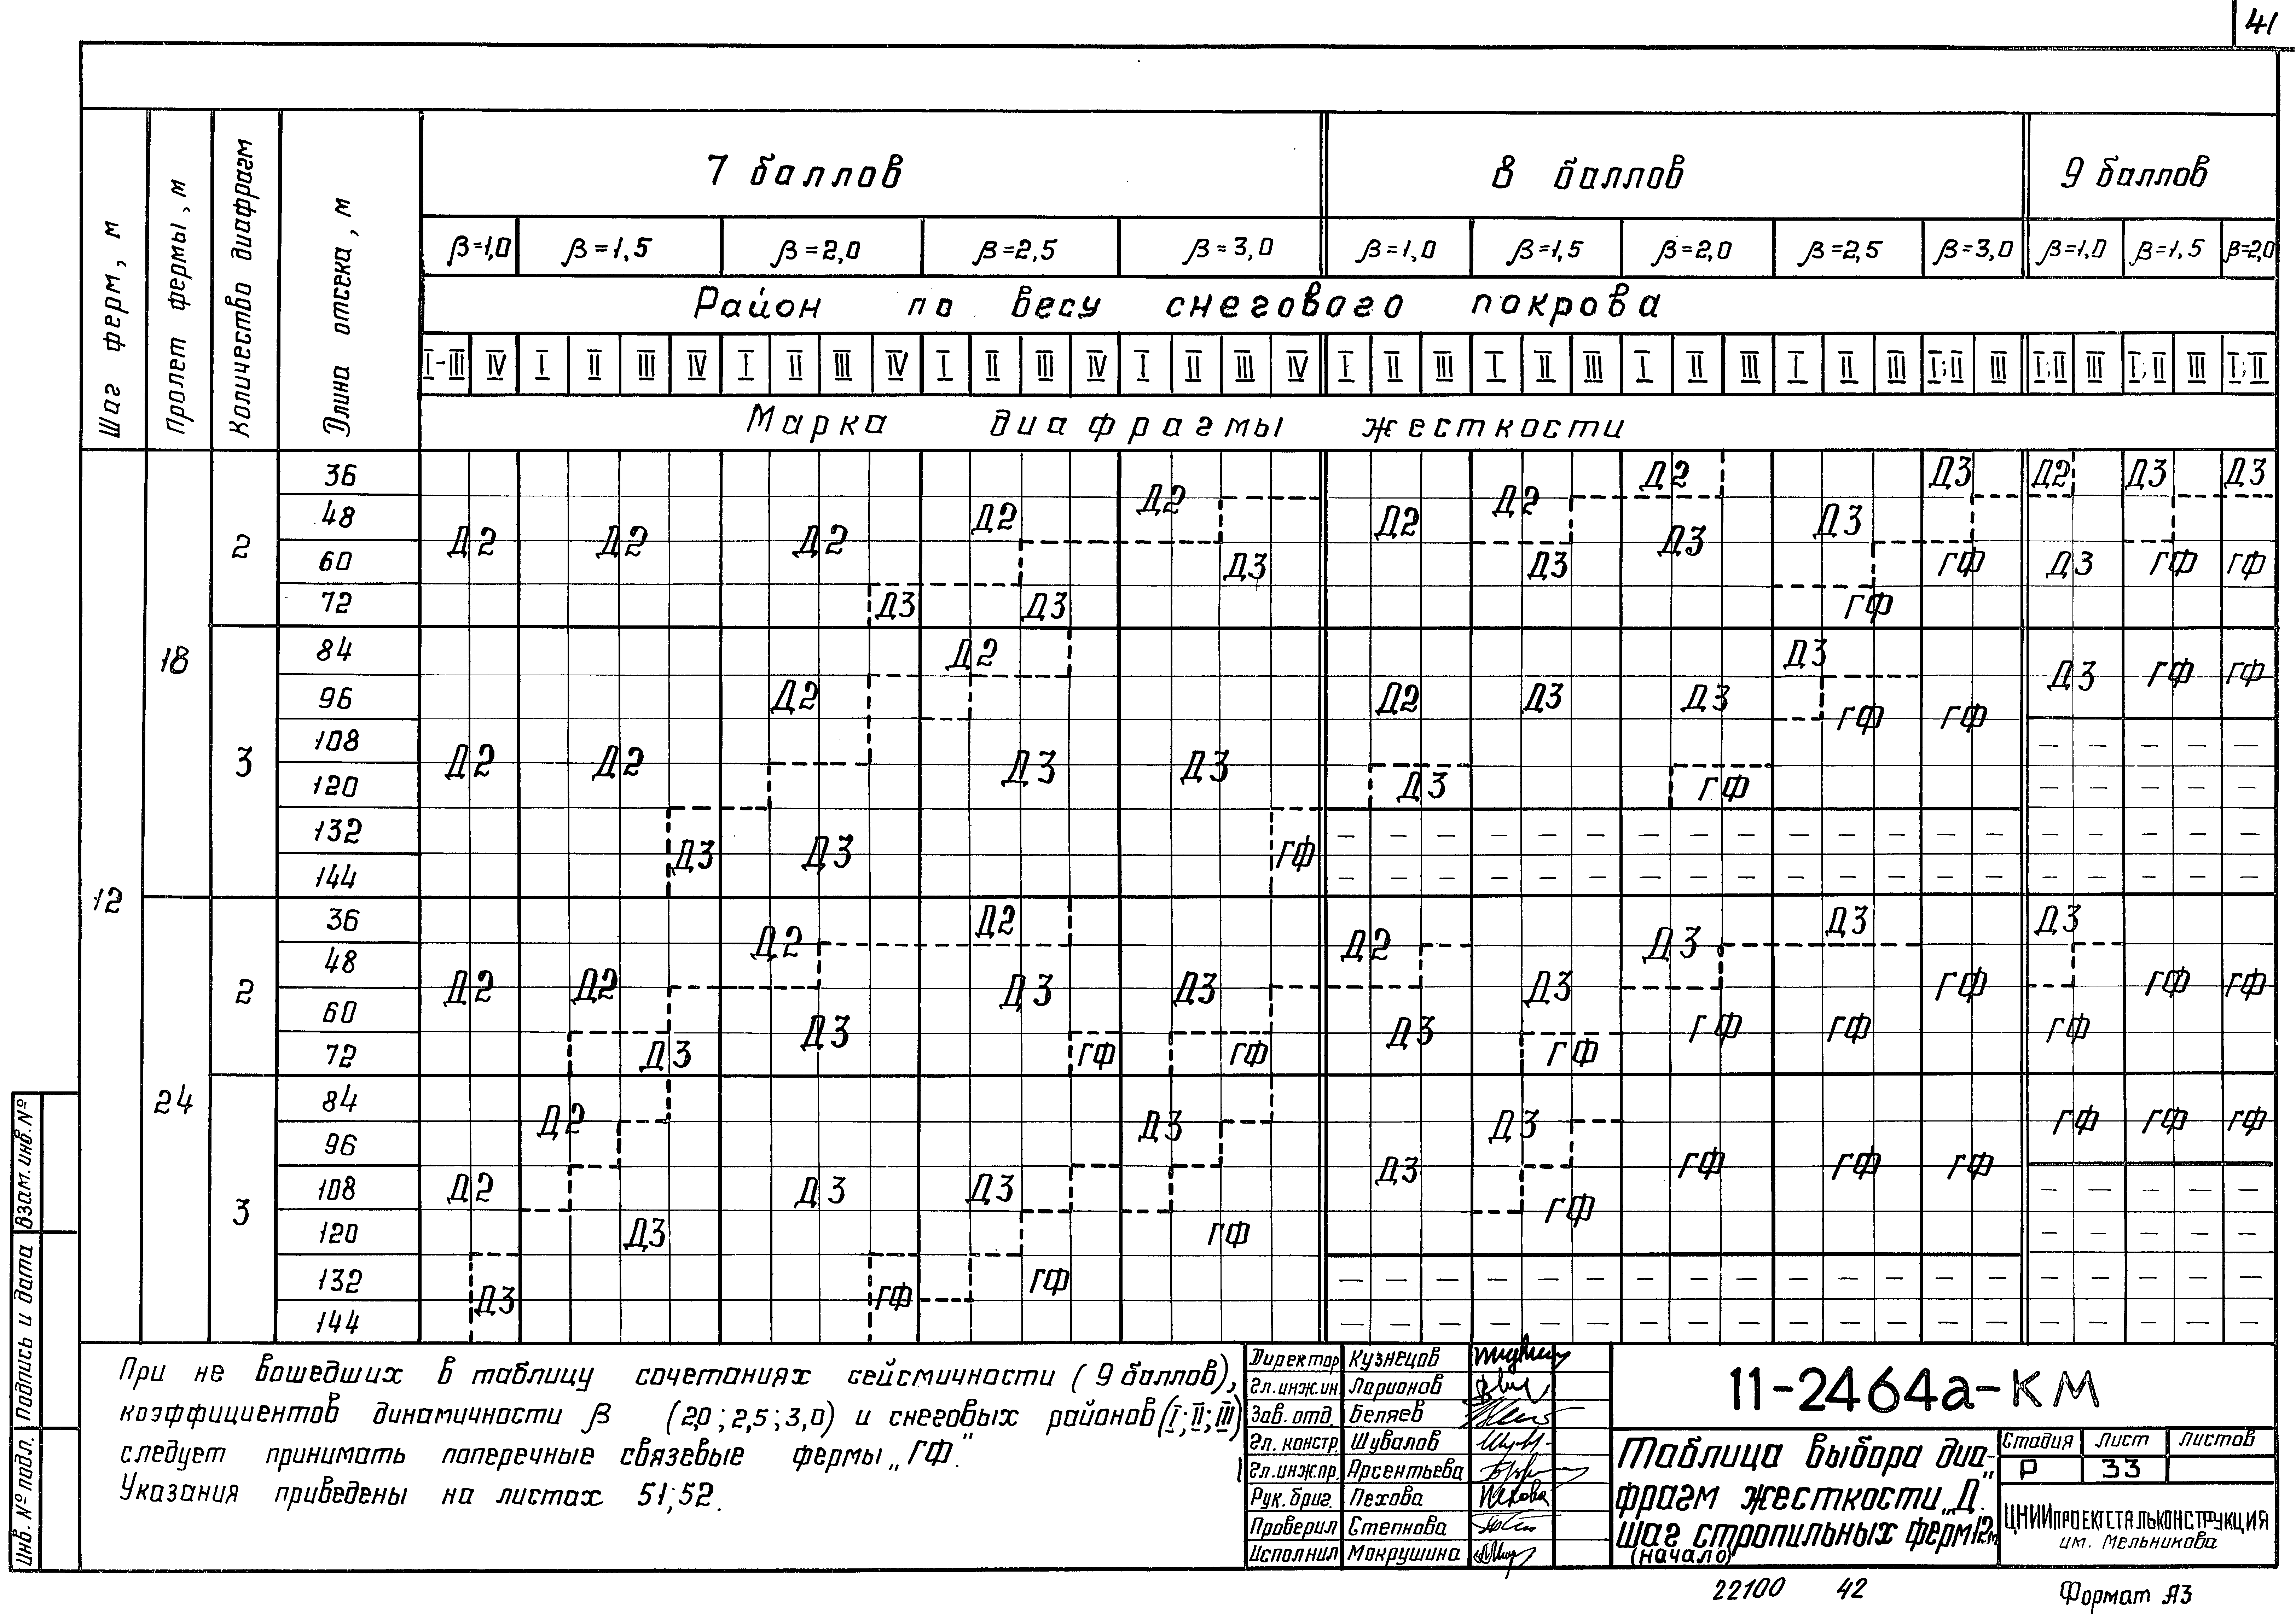 41
Шаг ферм, м
Пролет фермы, м
Количество диафрагм
Длина отсека, м
7 баллов 8 баллов 9 баллов
β=1,0 β=1,5 β=2,0 β=2,5 β=3,0 β=1,0 β=1,5 β=2,0 β=2,5 β=3,0 β=1,0 β=1,5 β=2,0
Район по весу снегового покрова
I-III IV I II III IV I II III IV I II III IV I II III IV I II III I II III I II III I II III I;II III I;II III I;II III I;II
Марка диафрагмы жесткости
36 Д2 Д2 Д3 Д2 Д3 Д3
48 Д2 Д2 Д2
2 Д2 Д2 Д2 Д3 Д3
60 Д3 Д3 ГФ Д3 ГФ ГФ
72 Д3 Д3 ГФ
18
84 Д2 Д3 Д3 ГФ ГФ
96 Д2 Д2 Д3 Д3 ГФ ГФ
108 — — — — —
3 Д2 Д2 Д3 Д3
120 Д3 ГФ — — — — —
132 — — — — — — — — — — — — — — — — — — —
Д3 Д3 ГФ
144 — — — — — — — — — — — — — — — — — — —
12
36 Д2 Д3 Д3
Д2 Д2 Д3
48
2 Д2 Д2 Д3 Д3 Д3 ГФ ГФ ГФ
60 Д3 Д3 ГФ ГФ ГФ
72 Д3 ГФ ГФ ГФ
24
84 Д2 Д3 Д3 ГФ ГФ ГФ
96 Д3 ГФ ГФ ГФ
108 Д2 Д3 Д3 — — — — —
3 ГФ
120 Д3 ГФ — — — — —
132 ГФ — — — — — — — — — — — — — — — — — — —
Д3 ГФ
144 — — — — — — — — — — — — — — — — — — —
При не вошедших в таблицу сочетаниях сейсмичности (9 баллов),
коэффициентов динамичности β (2,0; 2,5; 3,0) и снеговых районов (I; II; III)
следует принимать поперечные связевые фермы „ГФ".
Указания приведены на листах 51; 52.
Директор Кузнецов
Гл.инж.ин. Ларионов
Зав. отд. Беляев
Гл. констр. Шувалов
Гл.инж.пр. Арсентьева
Рук. бриг. Пехова
Проверил Степнова
Исполнил Мокрушина
11-2464а-КМ
Таблица выбора диа-
фрагм жесткости „Д".
Шаг стропильных ферм 12 м
(начало)
Стадия Лист Листов
Р 33
ЦНИИПРОЕКТСТАЛЬКОНСТРУКЦИЯ
им. Мельникова
Взам. инв. №
Подпись и дата
Инв. № подл.
22100 42
Формат А3